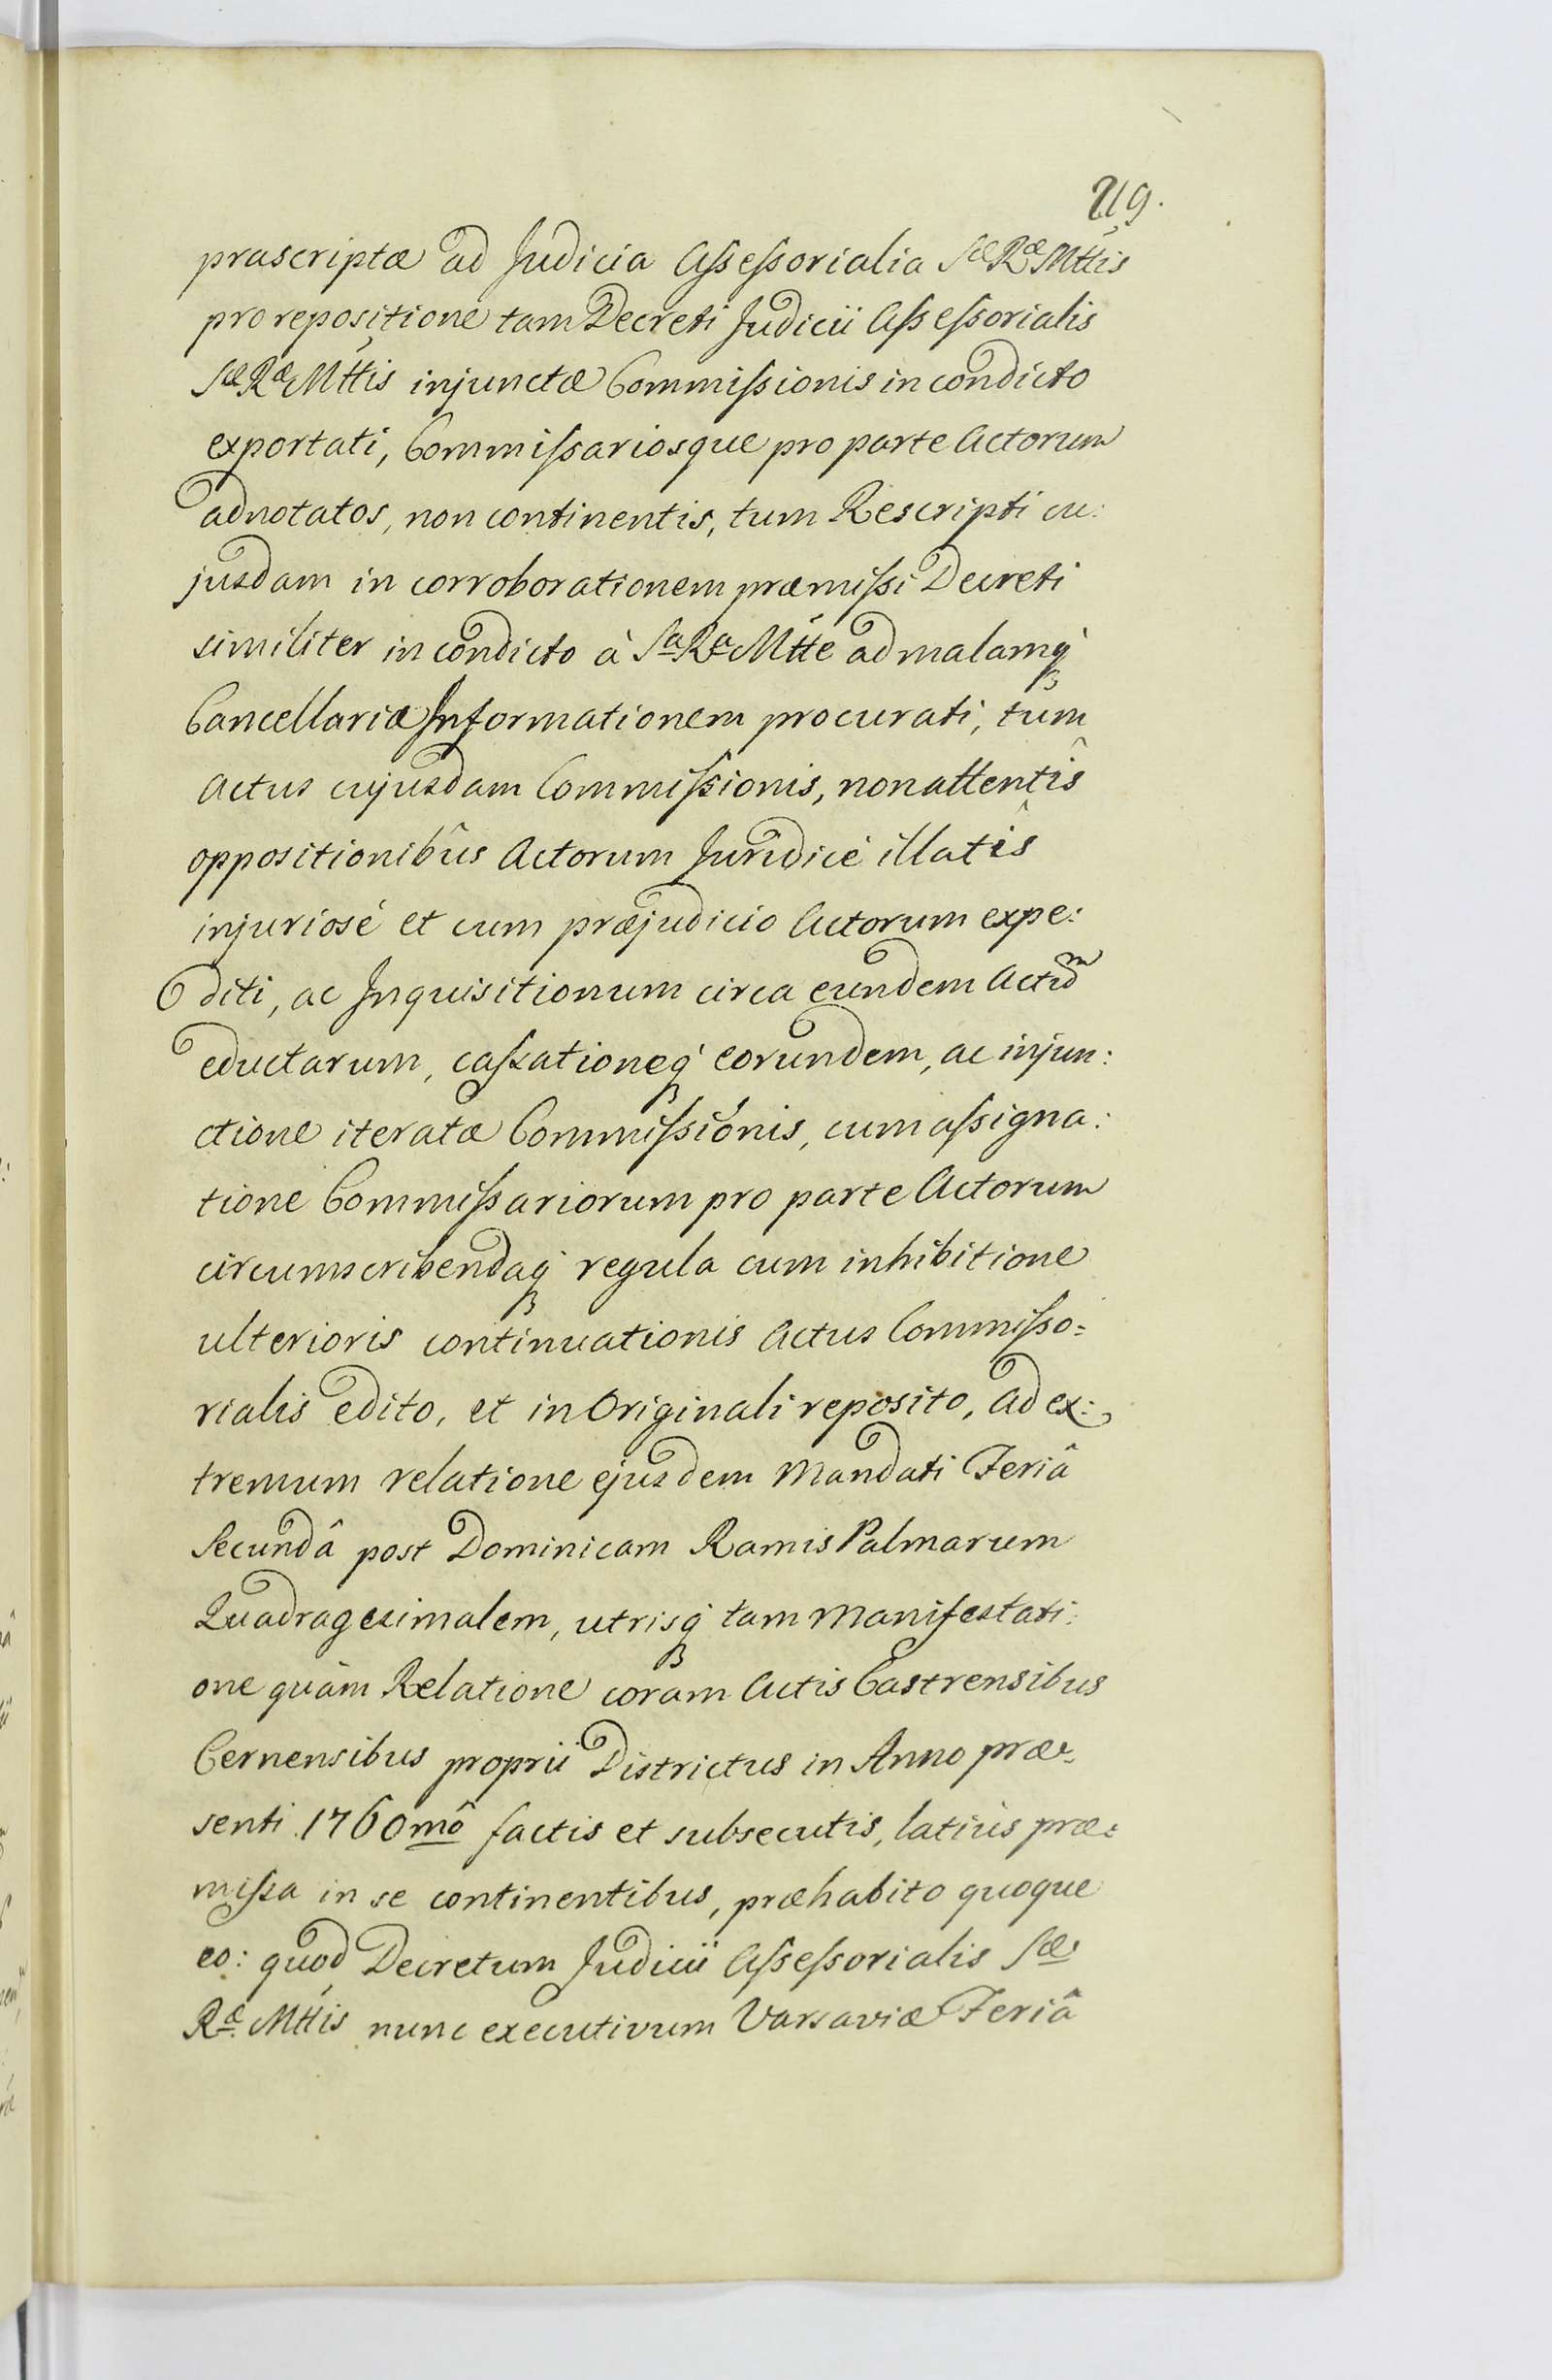 219.
præscriptæ ad Judicia Assessorialia Sæ Ræ Mttis
pro repositione tam Decreti Judicii Assessorialis
Sæ Ræ Mttis injunctæ Commissionis in condicto
exportati, Commissariosque pro parte Actorum
adnotatos, non continentis, tum Rescripti cu:
jusdam in corroborationem præmissi Decreti
similiter in condicto à Sa Ra Mtte ad malamq́
Cancellariæ Informationem procurati, tum
Actus cujusdam Commissionis, non attentîs
oppositionibûs Actorum Juridicè illatîs
injuriosé et cum præjudicio Actorum expe:
diti, ac Inquisitionum circa eundem Actum
eductarum, cassationeq́ eorundem, ac injun:
ctione iteratæ Commissionis, cum assigna:
tione Commissariorum pro parte Actorum
circumscribendaq́ regula cum inhibitione
ulterioris continuationis Actus Commisso:
rialis edito, et in Originali reposito, ad ex:
tremum relatione ejusdem Mandati Feriâ
Secundâ post Dominicam Ramis Palmarum
Quadragesimalem, utrisq́ tam Manifestati:
one quàm Relatione coram Actis Castrensibus
Cernensibus proprii Districtus in Anno præ:
senti 1760mô factis et subsecutis, latiùs præ:
missa in se continentibus, præhabito quoque
eo: quod Decretum Judicii Assessorialis Sæ
Ræ Mttis nunc executivum Varsaviæ Feriâ